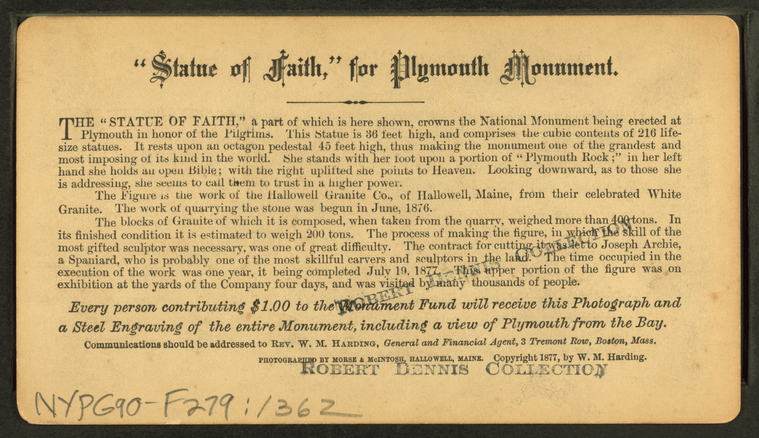 "Statue of Faith," for Plymouth Monument.
THE "STATUE OF FAITH," a part of which is here shown, crowns the National Monument being erected at
Plymouth in honor of the Pilgrims. This Statue is 36 feet high, and comprises the cubic contents of 216 life-
size statues. It rests upon an octagon pedestal 45 feet high, thus making the monument one of the grandest and
most imposing of its kind in the world. She stands with her foot upon a portion of "Plymouth Rock;" in her left
hand she holds an open Bible; with the right uplifted she points to Heaven. Looking downward, as to those she
is addressing, she seems to call them to trust in a higher power.
The Figure is the work of the Hallowell Granite Co., of Hallowell, Maine, from their celebrated White
Granite. The work of quarrying the stone was begun in June, 1876.
The blocks of Granite of which it is composed, when taken from the quarry, weighed more than 400 tons. In
its finished condition it is estimated to weigh 200 tons. The process of making the figure, in which the skill of the
most gifted sculptor was necessary, was one of great difficulty. The contract for cutting it was let to Joseph Archie,
a Spaniard, who is probably one of the most skillful carvers and sculptors in the land. The time occupied in the
execution of the work was one year, it being completed July 19, 1877. This upper portion of the figure was on
exhibition at the yards of the Company four days, and was visited by many thousands of people.
ROBERT DENNIS COLLECTION
Every person contributing $1.00 to the Monument Fund will receive this Photograph and
a Steel Engraving of the entire Monument, including a view of Plymouth from the Bay.
Communications should be addressed to REV. W. M. HARDING, General and Financial Agent, 3 Tremont Row, Boston, Mass.
PHOTOGRAPHED BY MORSE & McINTOSH, HALLOWELL, MAINE. Copyright 1877, by W. M. Harding.
ROBERT DENNIS COLLECTION
NYPG90-F279:1362